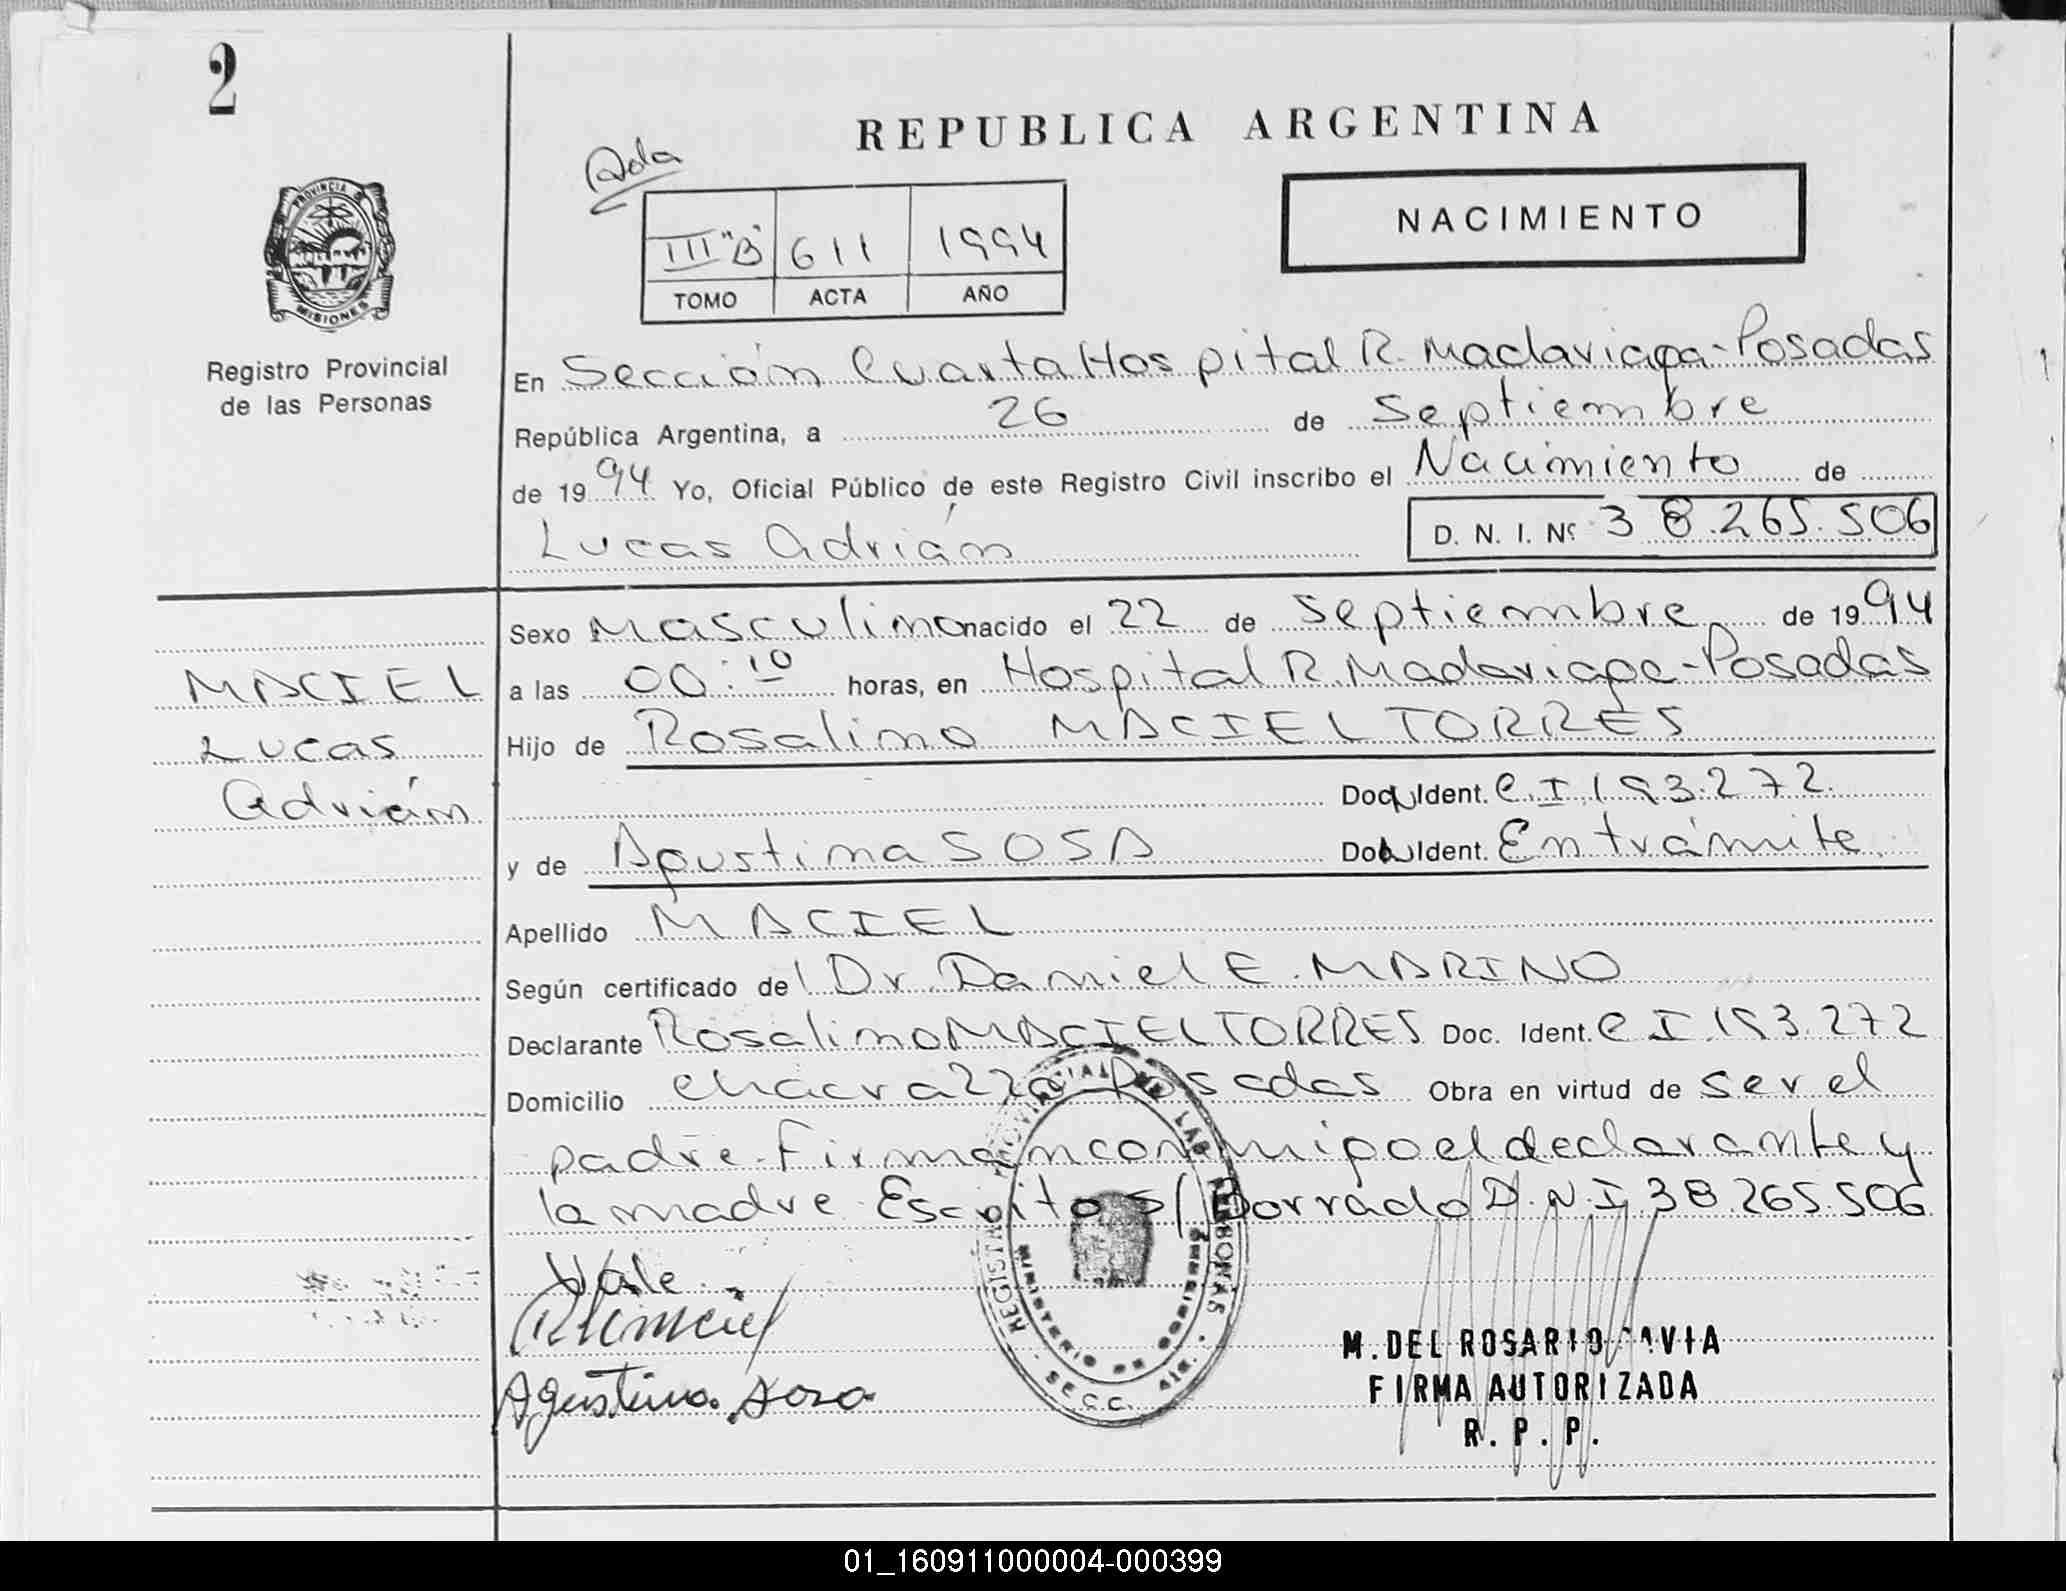 2
REPUBLICA ARGENTINA
Ada
PROVINCIA
MISIONES
III "B" 611 1994
TOMO ACTA AÑO
NACIMIENTO
Registro Provincial
de las Personas
En Sección Cuarta Hospital R. Madariaga-Posadas
República Argentina, a 26 de Septiembre
de 1994 Yo, Oficial Público de este Registro Civil inscribo el Nacimiento de
Lucas Adrián D. N. I. Nº 38.265.506
Sexo Masculino nacido el 22 de Septiembre de 1994
MACIEL a las 00:10 horas, en Hospital R. Madariaga-Posadas
Lucas Hijo de Rosalino MACIEL TORRES
Adrián Doc. Ident. C.I. 193.272
y de Agustina SOSA Doc. Ident. En trámite
Apellido MACIEL
Según certificado del Dr. Daniel E. MARINO
Declarante Rosalino MACIEL TORRES Doc. Ident. C I. 193.272
Domicilio chacra 220 Posadas Obra en virtud de ser el
padre. Firman conmigo el declarante y
la madre. Escrito s/ Borrado D.N.I 38.265.506
Vale.
Agustina Sosa
REGISTRO PROVINCIAL DE LAS PERSONAS
MINISTERIO DE GOBIERNO
SECC. 4ta.
M. DEL ROSARIO
FIRMA AUTORIZADA
R. P. P.
01_160911000004-000399